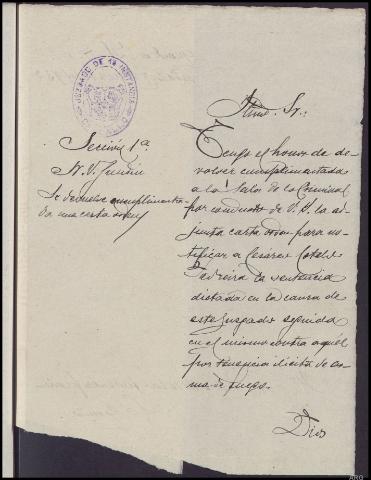 JUZGADO DE 1ª INSTANCIA
Sección 1ª
Se devuelve cumplimenta-
da una carta orden
Iltmo. Sr.:
Tengo el honor de de-
volver cumplimentada
a la Sala de lo Criminal
por conducto de V.S. la ad-
junta carta orden para no-
tificar a Cesareo
Pedreira la sentencia
dictada en la causa de
este Juzgado seguida
en el mismo contra aquél
por tenencia ilícita de ar-
ma de fuego.
Dios
ARG